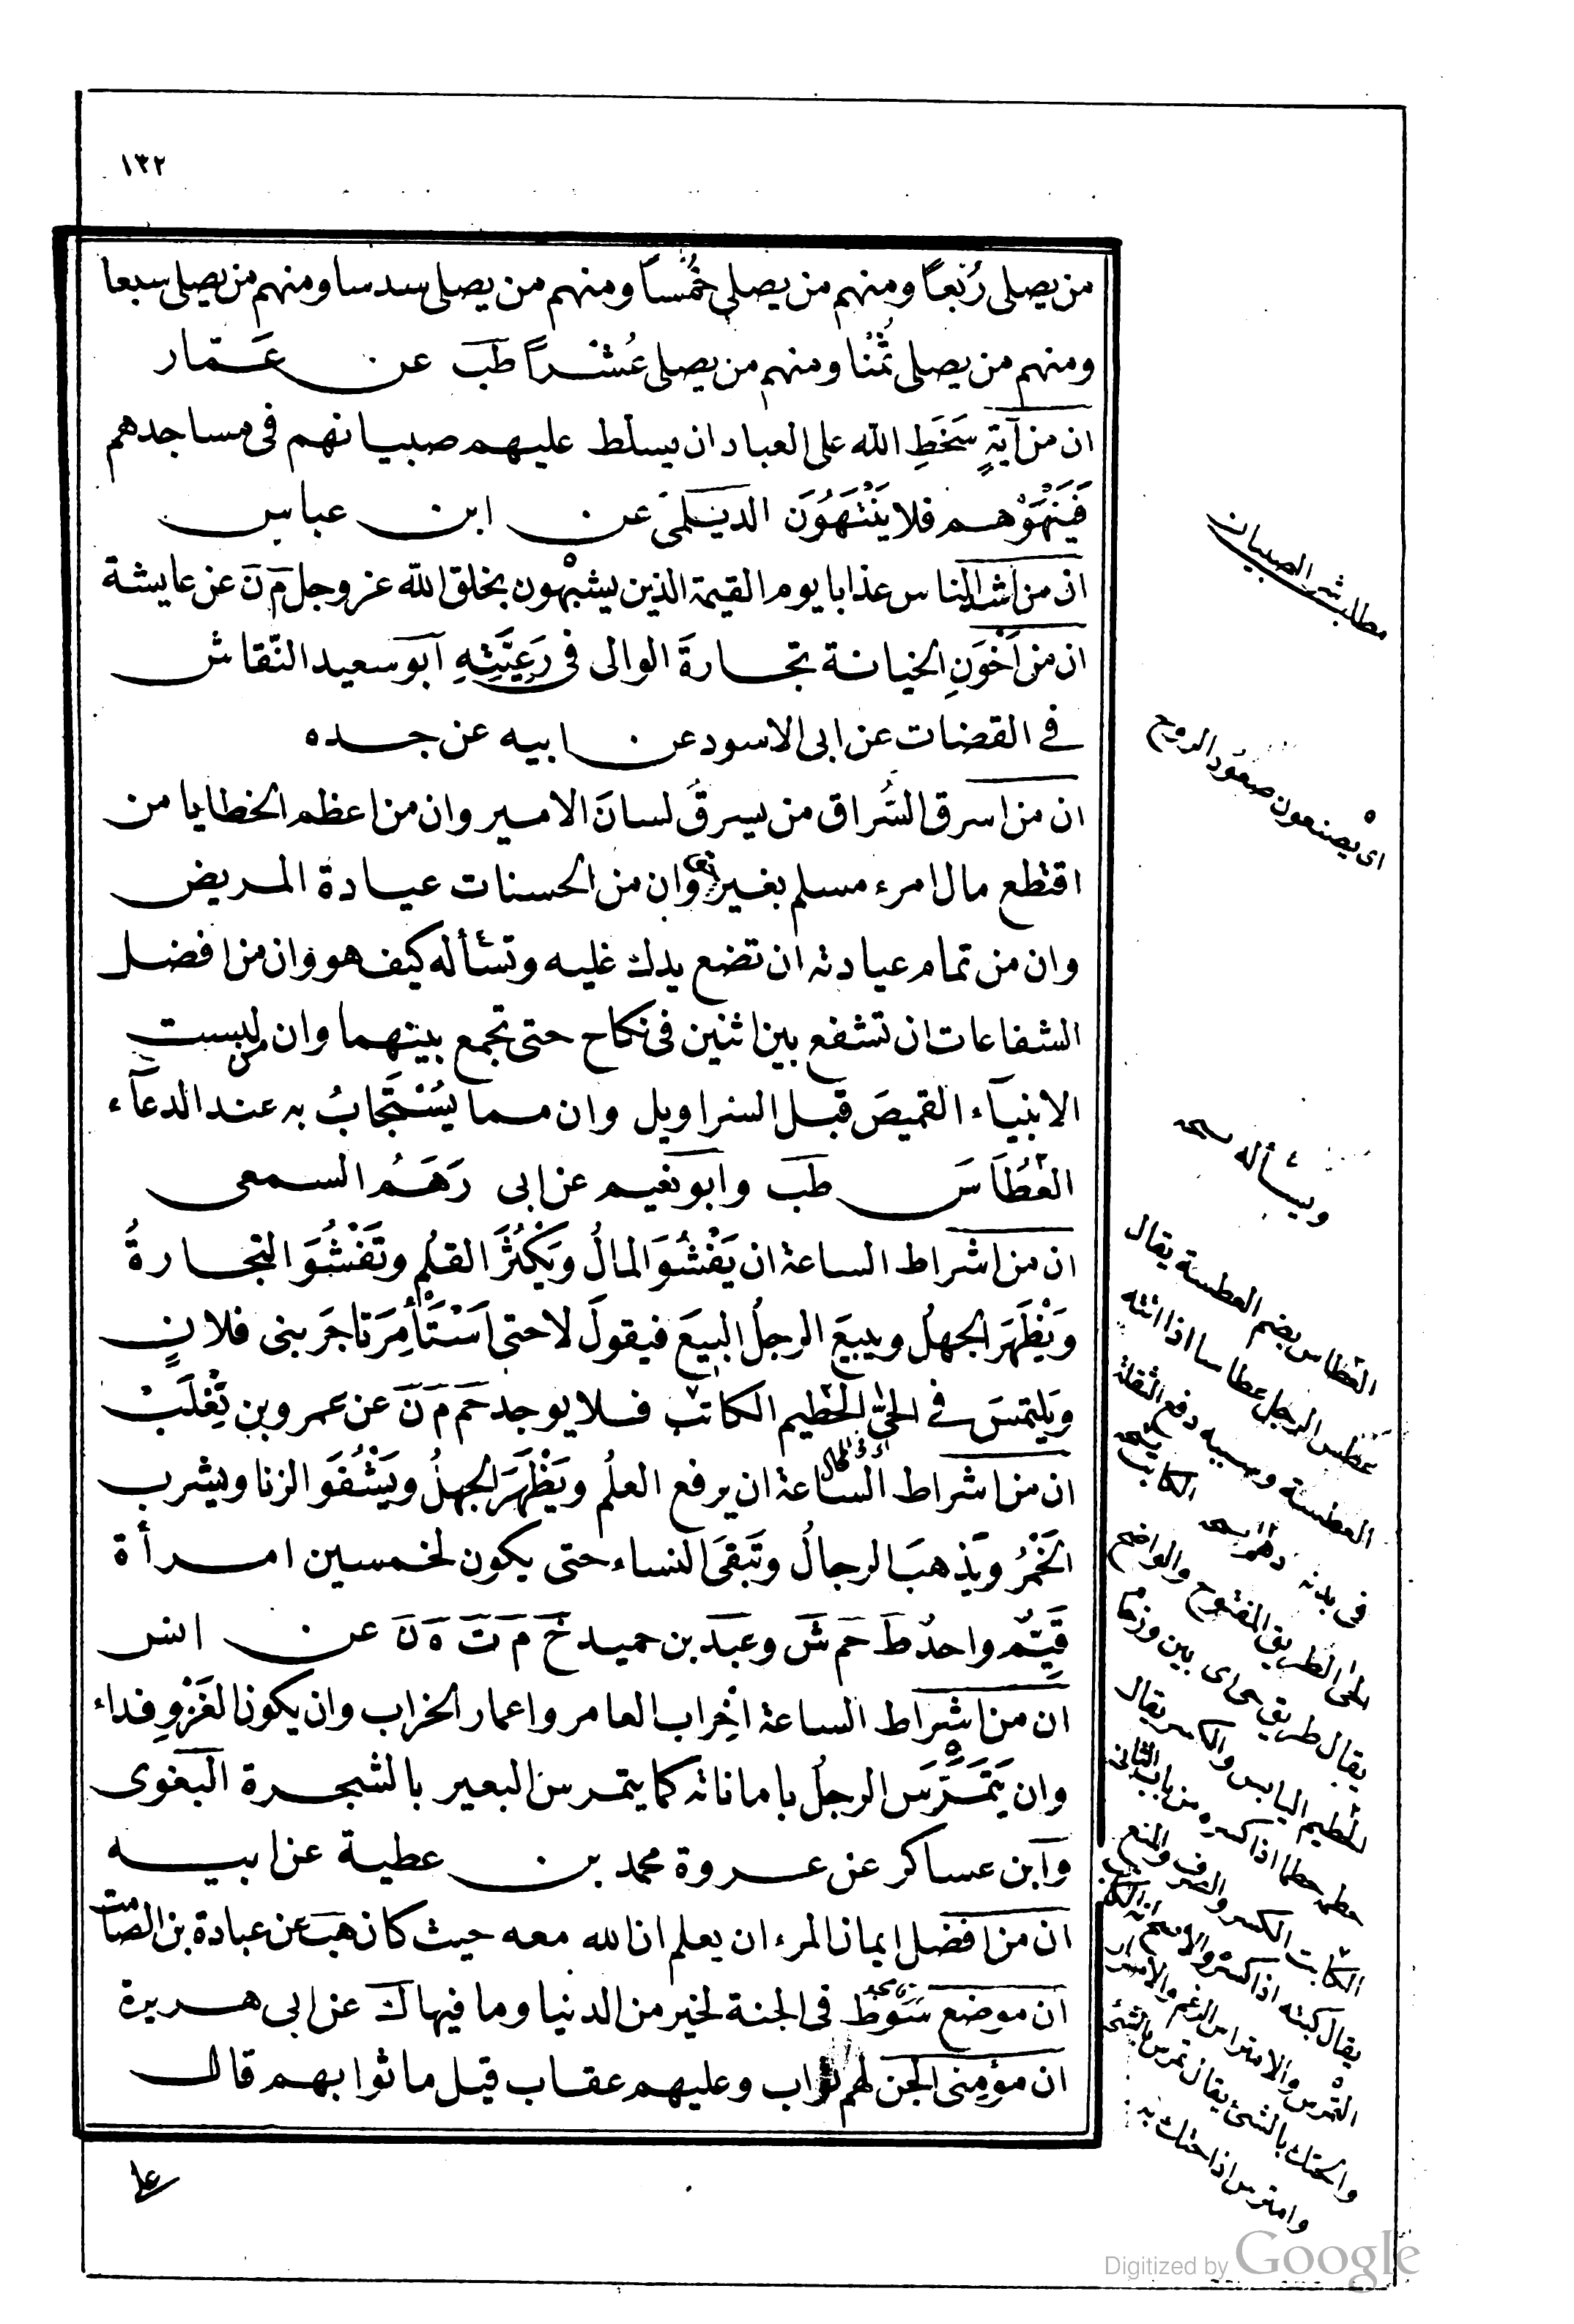 ١٣٢
من يصلى رُبُعاً ومنهم من يصلى خُمُساً ومنهم من يصلى سدسا ومنهم من يصلى سبعا
ومنهم من يصلى ثُمُنا ومنهم من يصلى عُشْراً طب عن عَمّار
ان من آيةِ سَخَطِ الله على العباد ان يسلط عليهم صبيانهم فى مساجدهم
فَيَنْهَوْهم فلا يَنْتَهُوَن الديلمى عن ابن عباس
ان من اشد الناس عذابا يوم القيمة الذين يشبهون بخلق الله عز وجل م ن عن عايشة
ان من اَخْوَنِ الخيانة تجارةَ الوالى فى رَعِيَّتِهِ ابو سعيد النّقاش
فى القضات عن ابى الاسود عن ابيه عن جده
ان من اسرق السُّراق من يسرقُ لسانَ الامير وان من اعظم الخطايا من
اقتطع مال امرء مسلم بغير حق وان من الحسنات عيادة المريض
وان من تمام عيادته ان تضع يدك عليه وتسأله كيف هو وان من افضل
الشفاعات ان تشفع بين اثنين فى نكاح حتى تجمع بينهما وان من لبست
الانبيآء القميصَ قبل السراويل وان مما يُسْتَجَابُ به عند الدعآء
العُطَاسَ طب وابو نعيم عن ابى رَهَم السمعى
ان من اشراط الساعة ان يَفْشُوَ المالُ ويَكْثُرَ القلم وتَفْشُوَ التجارةُ
ويَظْهَرَ الجهلُ ويبيعَ الرجلُ البيعَ فيقولَ لا حتى اَسْتَأْمِرَ تاجرَ بنى فلانٍ
ويَلتمسَ فى الحىّ العظيم الكاتب فلا يوجد حم م ن عن عمرو بن تَغْلَبَ
ان من اشراط الساعة ان يرفع العلُم ويَظْهَرَ الجهلُ ويَشْفُوَ الزنا ويشرب
الخَمْرُ ويَذهبَ الرجالُ وتَبقىَ النساء حتى يكون لخمسين امرأة
قَيِّم واحدٌ ط حم ش وعبد بن حميد خ م ت ه ن عن انس
ان من اشراط الساعة اخراب العامر واعمار الخراب وان يكون الغَزْو فداء
وان يَتَمَرَّسَ الرجلُ باماناته كما يتمرس البعير بالشجرة البغوى
وابن عساكر عن عروة محمد بن عطية عن ابيه
ان من افضل ايمان المرء ان يعلم ان لله معه حيث كان هب عن عبادة بن الصامت
ان موضع سَوْط فى الجنة لخير من الدنيا وما فيها ك عن ابى هريرة
ان مؤمنى الجن لهم ثواب وعليهم عقاب قيل ما ثوابهم قال
على
مطلب شر الصبيان
اى يصنعون صعود الروح
ويسأله نسخه
العطاس بضم العطسة يقال
عطس الرجل عطاسا اذا اتته
العطسة وسببه دفع الثقلة
فى بدنه
الطريق المفتوح والواضح
يقال طريق حى اى بين
الحطيم اليابس والكسر يقال
حطم حطما اذا كسره من باب الثانى
الكبت الكسر والصرف والمنع
يقال كبته اذا كسره
التمرس والامتراس
واحتك بالشئ يقال تمرس بالشئ
وامترس اذا احتك به
Digitized by Google